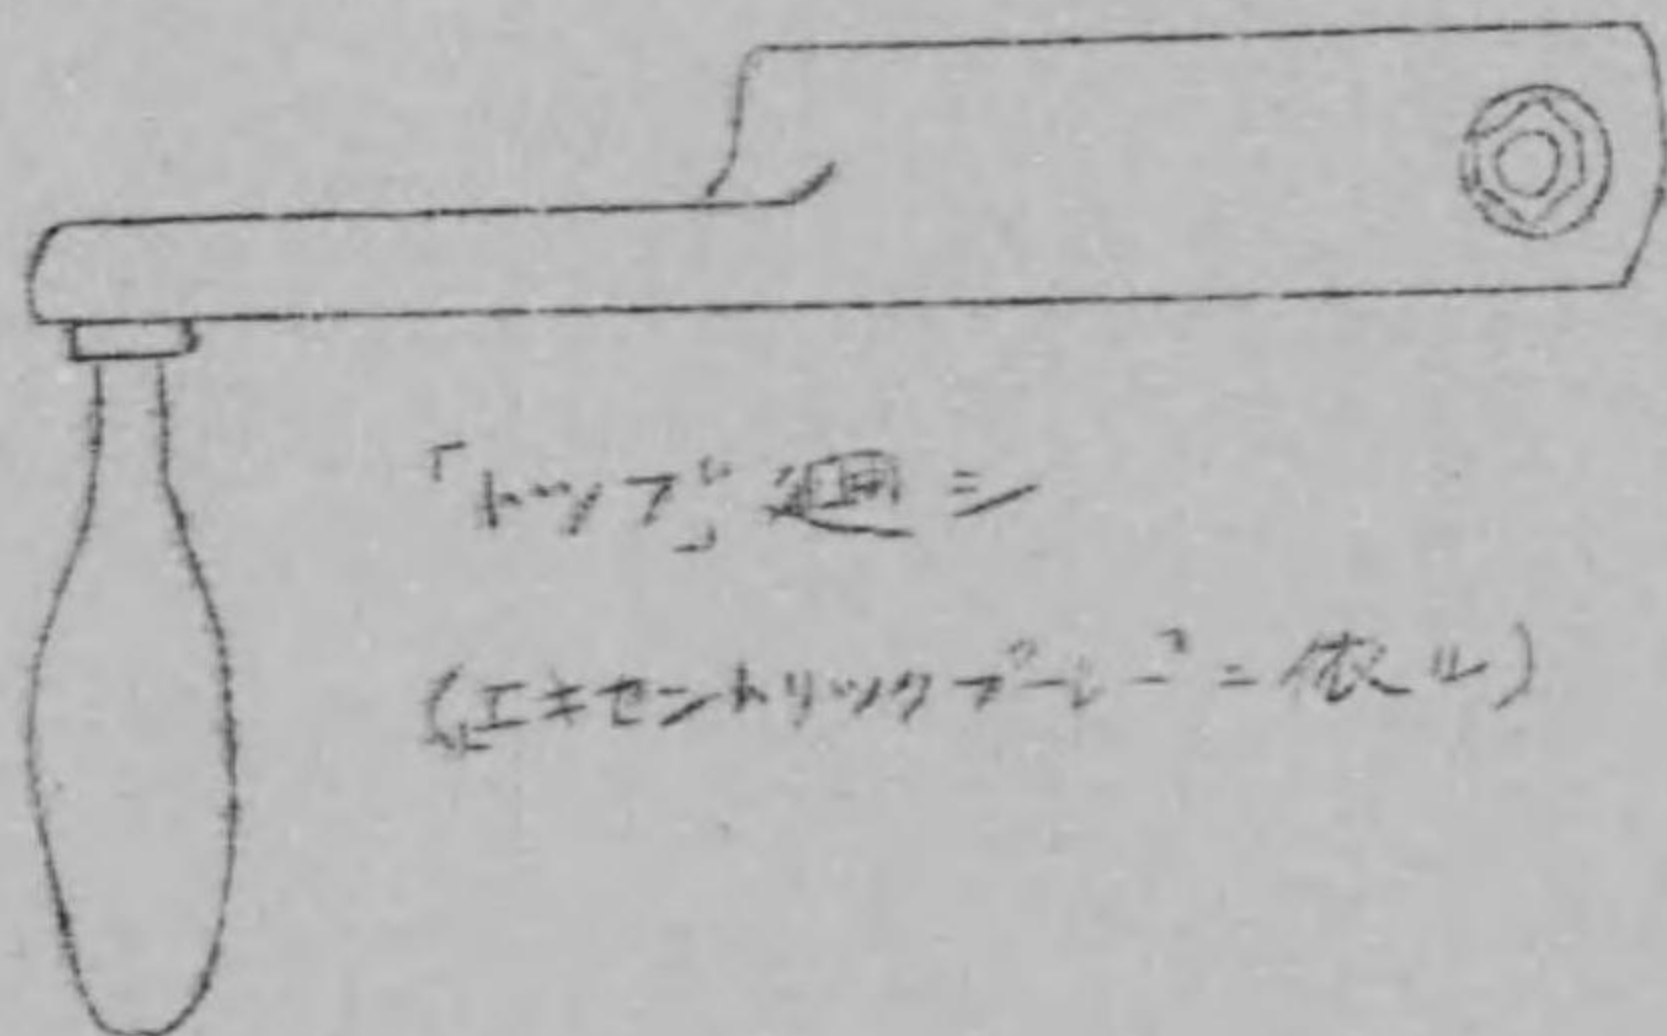 「トツプ」廻シ
(エキセントリツクプーレーニ依ル)